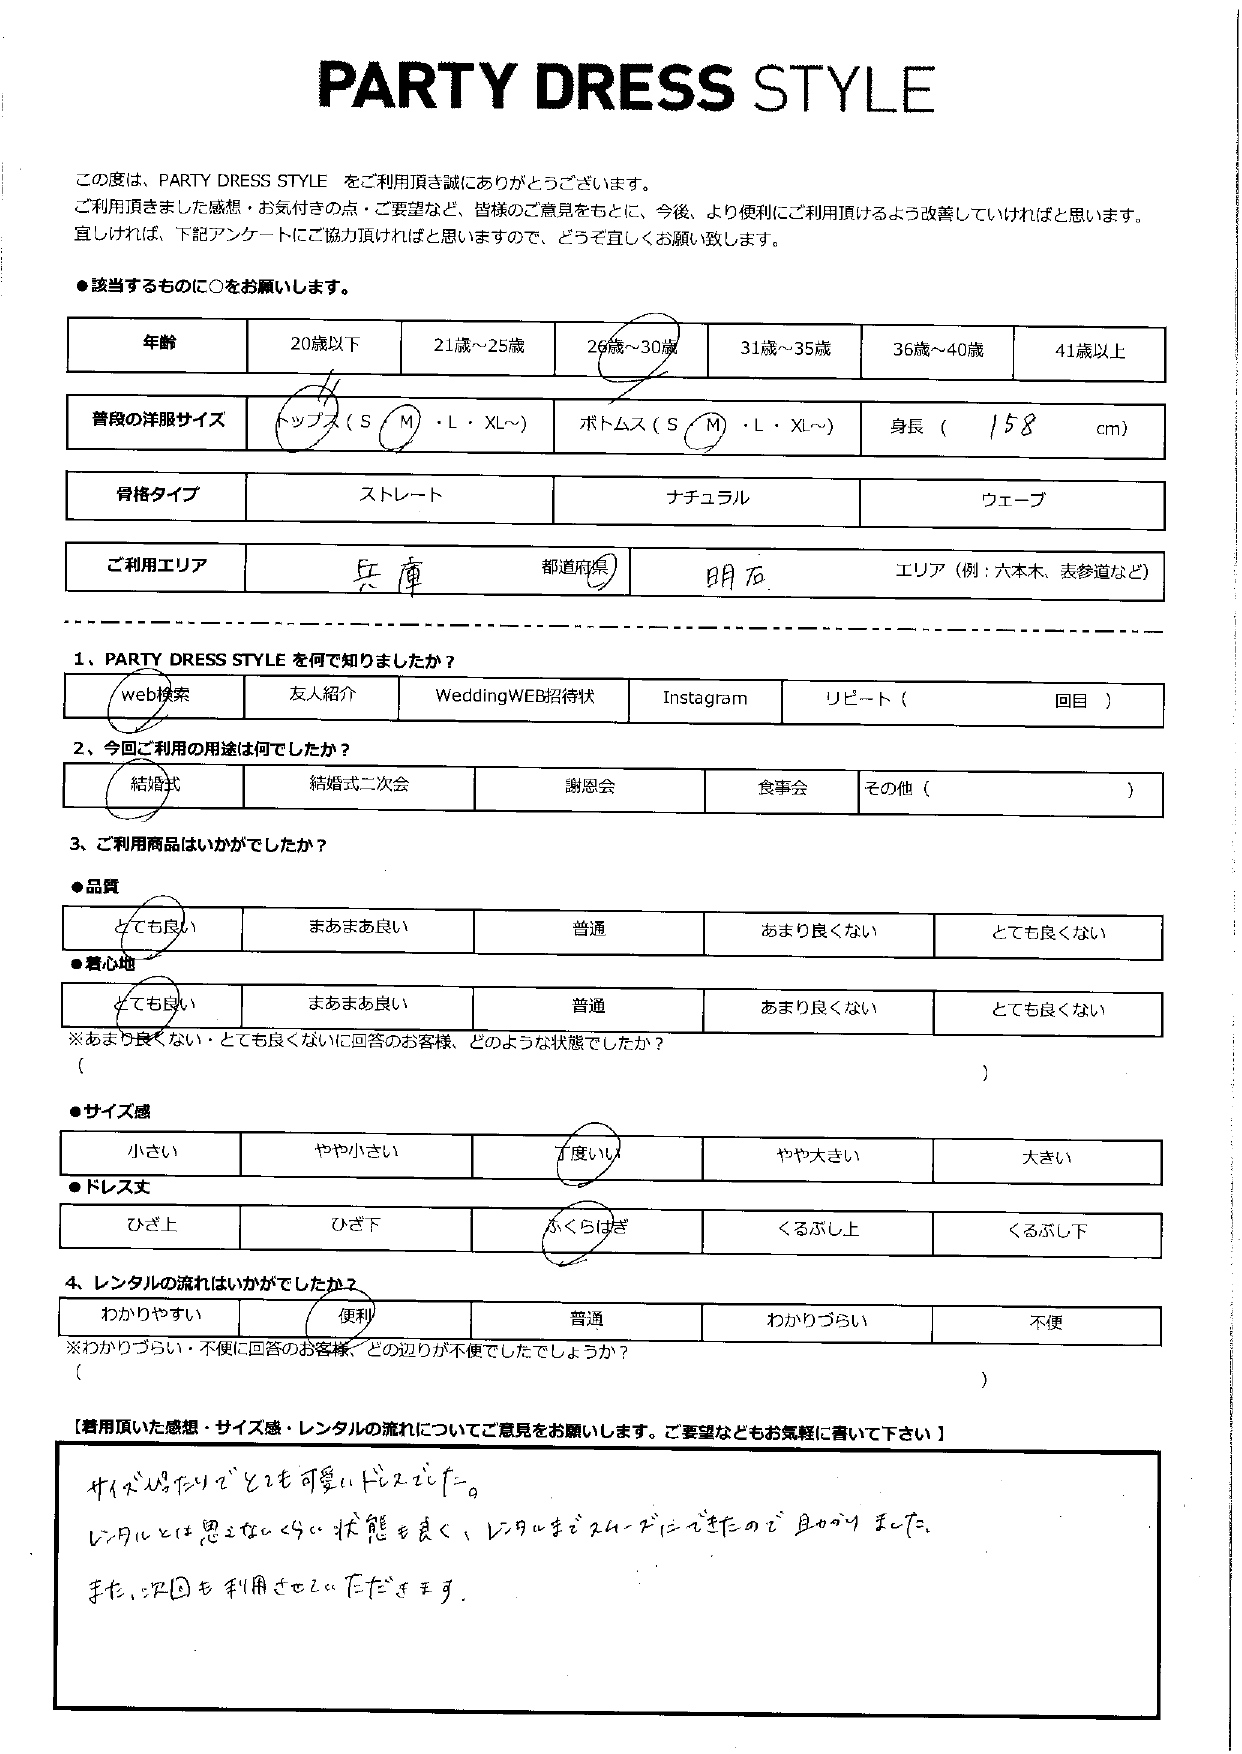 PARTY DRESS STYLE
この度は、PARTY DRESS STYLE をご利用頂き誠にありがとうございます。
ご利用頂きました感想・お気付きの点・ご要望など、皆様のご意見をもとに、今後、より便利にご利用頂けるよう改善していければと思います。
宜しければ、下記アンケートにご協力頂ければと思いますので、どうぞ宜しくお願い致します。
●該当するものに○をお願いします。
年齢 20歳以下 21歳～25歳 26歳～30歳 31歳～35歳 36歳～40歳 41歳以上
普段の洋服サイズ トップス ( S ・ M ・ L ・ XL～) ボトムス ( S ・ M ・ L ・ XL～) 身長 ( 158 cm)
骨格タイプ ストレート ナチュラル ウェーブ
ご利用エリア 兵庫 都道府県 明石 エリア（例：六本木、表参道など）
1、PARTY DRESS STYLE を何で知りましたか？
web検索 友人紹介 WeddingWEB招待状 Instagram リピート ( 回目 )
2、今回ご利用の用途は何でしたか？
結婚式 結婚式二次会 謝恩会 食事会 その他 ( )
3、ご利用商品はいかがでしたか？
●品質
とても良い まあまあ良い 普通 あまり良くない とても良くない
●着心地
とても良い まあまあ良い 普通 あまり良くない とても良くない
※あまり良くない・とても良くないに回答のお客様、どのような状態でしたか？
( )
●サイズ感
小さい やや小さい 丁度いい やや大きい 大きい
●ドレス丈
ひざ上 ひざ下 ふくらはぎ くるぶし上 くるぶし下
4、レンタルの流れはいかがでしたか？
わかりやすい 便利 普通 わかりづらい 不便
※わかりづらい・不便に回答のお客様、どの辺りが不便でしたでしょうか？
( )
【着用頂いた感想・サイズ感・レンタルの流れについてご意見をお願いします。ご要望などもお気軽に書いて下さい 】
サイズぴったりでとても可愛いドレスでした。
レンタルとは思えないくらい状態も良く、レンタルまでスムーズにできたので助かりました。
また、次回も利用させていただきます.